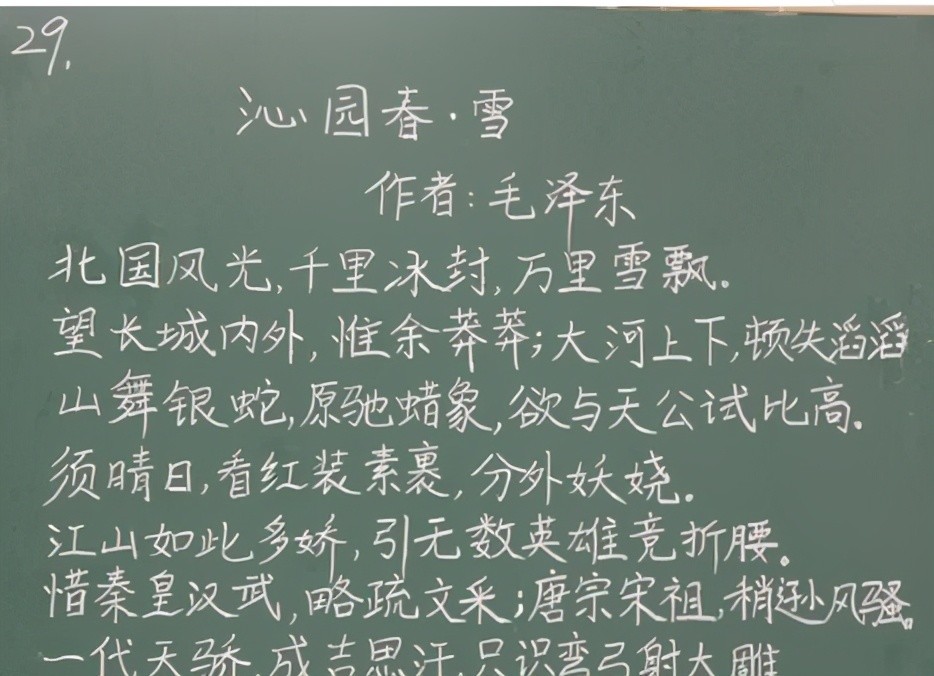 29.
沁园春·雪
作者:毛泽东
北国风光,千里冰封,万里雪飘。
望长城内外,惟余莽莽;大河上下,顿失滔滔
山舞银蛇,原驰蜡象,欲与天公试比高。
须晴日,看红装素裹,分外妖娆。
江山如此多娇,引无数英雄竞折腰。
惜秦皇汉武,略疏文采;唐宗宋祖,稍逊风骚。
一代天骄,成吉思汗,只识弯弓射大雕